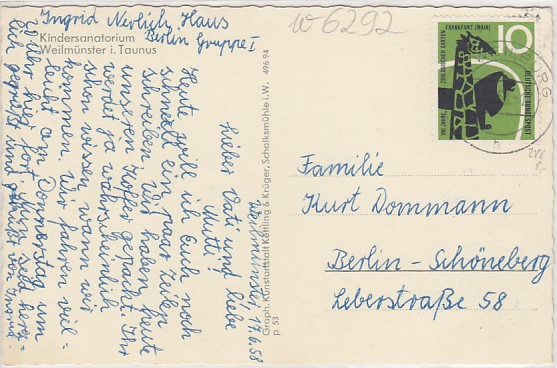 Ingrid Nerlich, Haus
Berlin Gruppe I
Kindersanatorium
Weilmünster i. Taunus
w 6292
Weilmünster, 17.6.58
Lieber Vati und liebe
Mutti!
Heute will ich Euch noch
schnell ein paar Zeilen
schreiben. Wir haben heute
unseren Koffer gepackt. Ihr
werdet ja wahrscheinlich
schon wissen, wann wir
kommen. Wir fahren viel=
leicht am Donnerstag um
Uhr hier fort. Nun seid herz=
lich gegrüßt und geküßt von Ingrid.
Graph. Kunstanstalt Kettling & Krüger, Schalksmühle i.W. 496 94
p 53
100 JAHRE ZOOLOGISCHER GARTEN FRANKFURT (MAIN)
10
DEUTSCHE BUNDESPOST
Familie
Kurt Dommann
Berlin-Schöneberg
Leberstraße 58